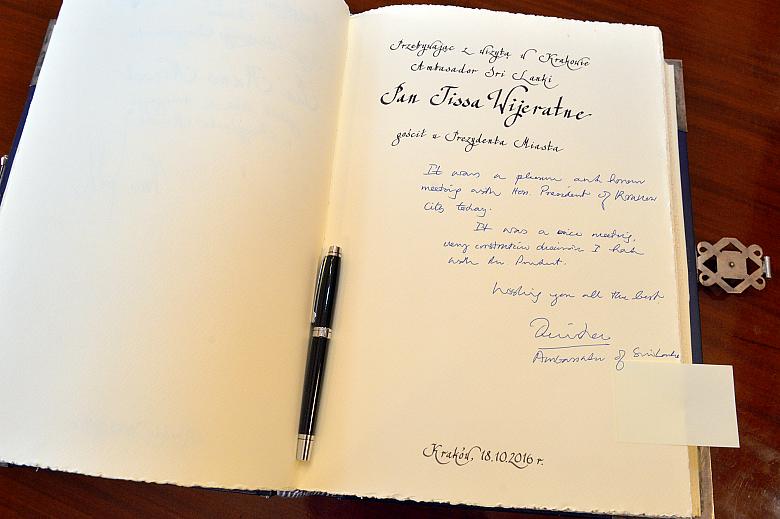 Przebywając z wizytą w Krakowie
Ambasador Sri Lanki
Pan Tissa Wijeratne
gościł u Prezydenta Miasta
It was a and honour
meeting with Hon. President of Krakow
City today.
It was a nice meeting,
very constructive I had
with the President.
Wishing you all the best
Ambassador of Sri Lanka
Kraków, 18.10.2016 r.